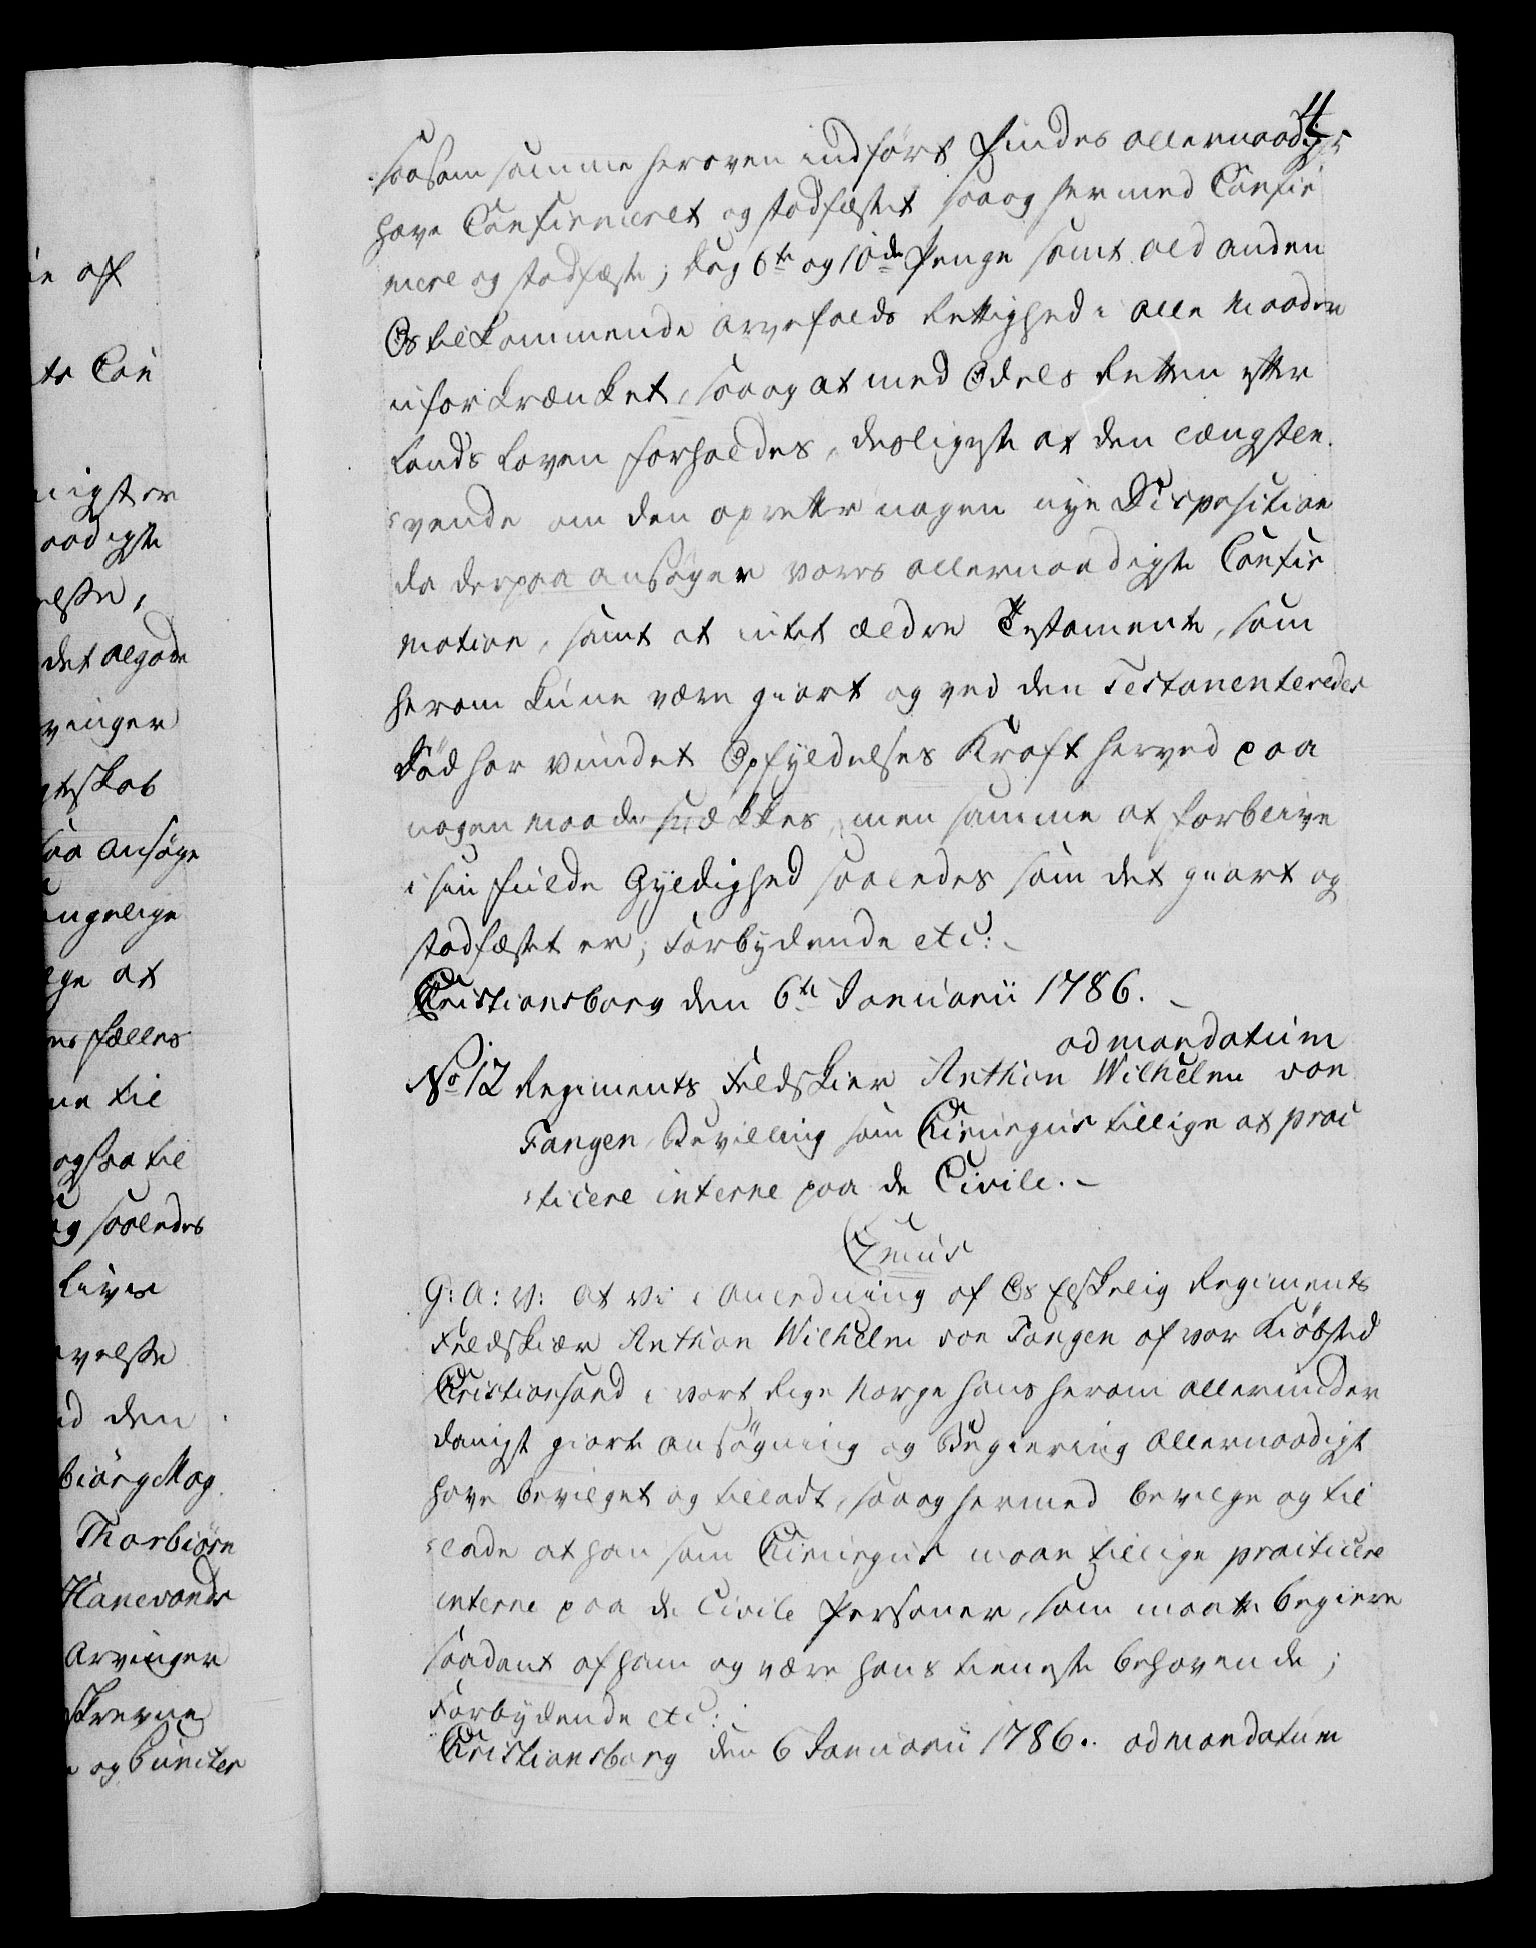 4
saasom samme heroven indført findes allernaadigst
have Confirmeret og stadfæstet saa og hermed Confir
mere og stadfæste; dog 6te og 10de Penge samt ald anden
Os tilkommende arvefalds Rettighed i alle Maader
uforkrænket, saa og at med Odels Retten efter
Lands Loven forholdes, desligeste at den længstle
vende om den opretter nogen nye Disposition
da derpaa ansøger vores allernaadigste Confir
mation, samt at intet ældre Testamente, som
herom kune være giort og ved den Testamenteredes
Død har vundet Opfyldelses Kraft herved paa
nogen maade svækkes, men samme at forblive
i sin fulde Gyldighed saaledes som det giort og
stadfæstet er; Forbydende etc:
Christiansborg den 6te Januarii 1786.
ad mandatum
No 12 Regiments Feldskier Anthon Wilhelm von
Fangen Bevilling som Chirurgus tillige at prac
ticere interne paa de Civile.
G: A: V: at Vi i Anledning af Os Elskelig Regiments
Feldskier Anthon Wilhelm von Fangen af vor Kiøbsted
Christiansand i vort Rige Norge hans herom allerunder
danigst giorte ansøgning og Begiering Allernaadigst
have bevilget og tilladt, saa og hermed bevilge og til
lade at han som Chirurgus maae tillige practicere
interne paa de Civile Personer, som maatte begiere
saadant af ham og være hans tieneste behøvende;
Forbydende etc:
Christiansborg den 6 Januarii 1786. ad mandatum
af
te Con
nigst er
aadigste
else,
det algode
vinger
gteskab
saa ansøge
ængelige
ge at
es fælles
ne til
ogsaa til
og saaledes
Livs
velse
d den
biørg Mag
Thorbiørn
Hanevands
Arvinger
skrevne
og Puncter